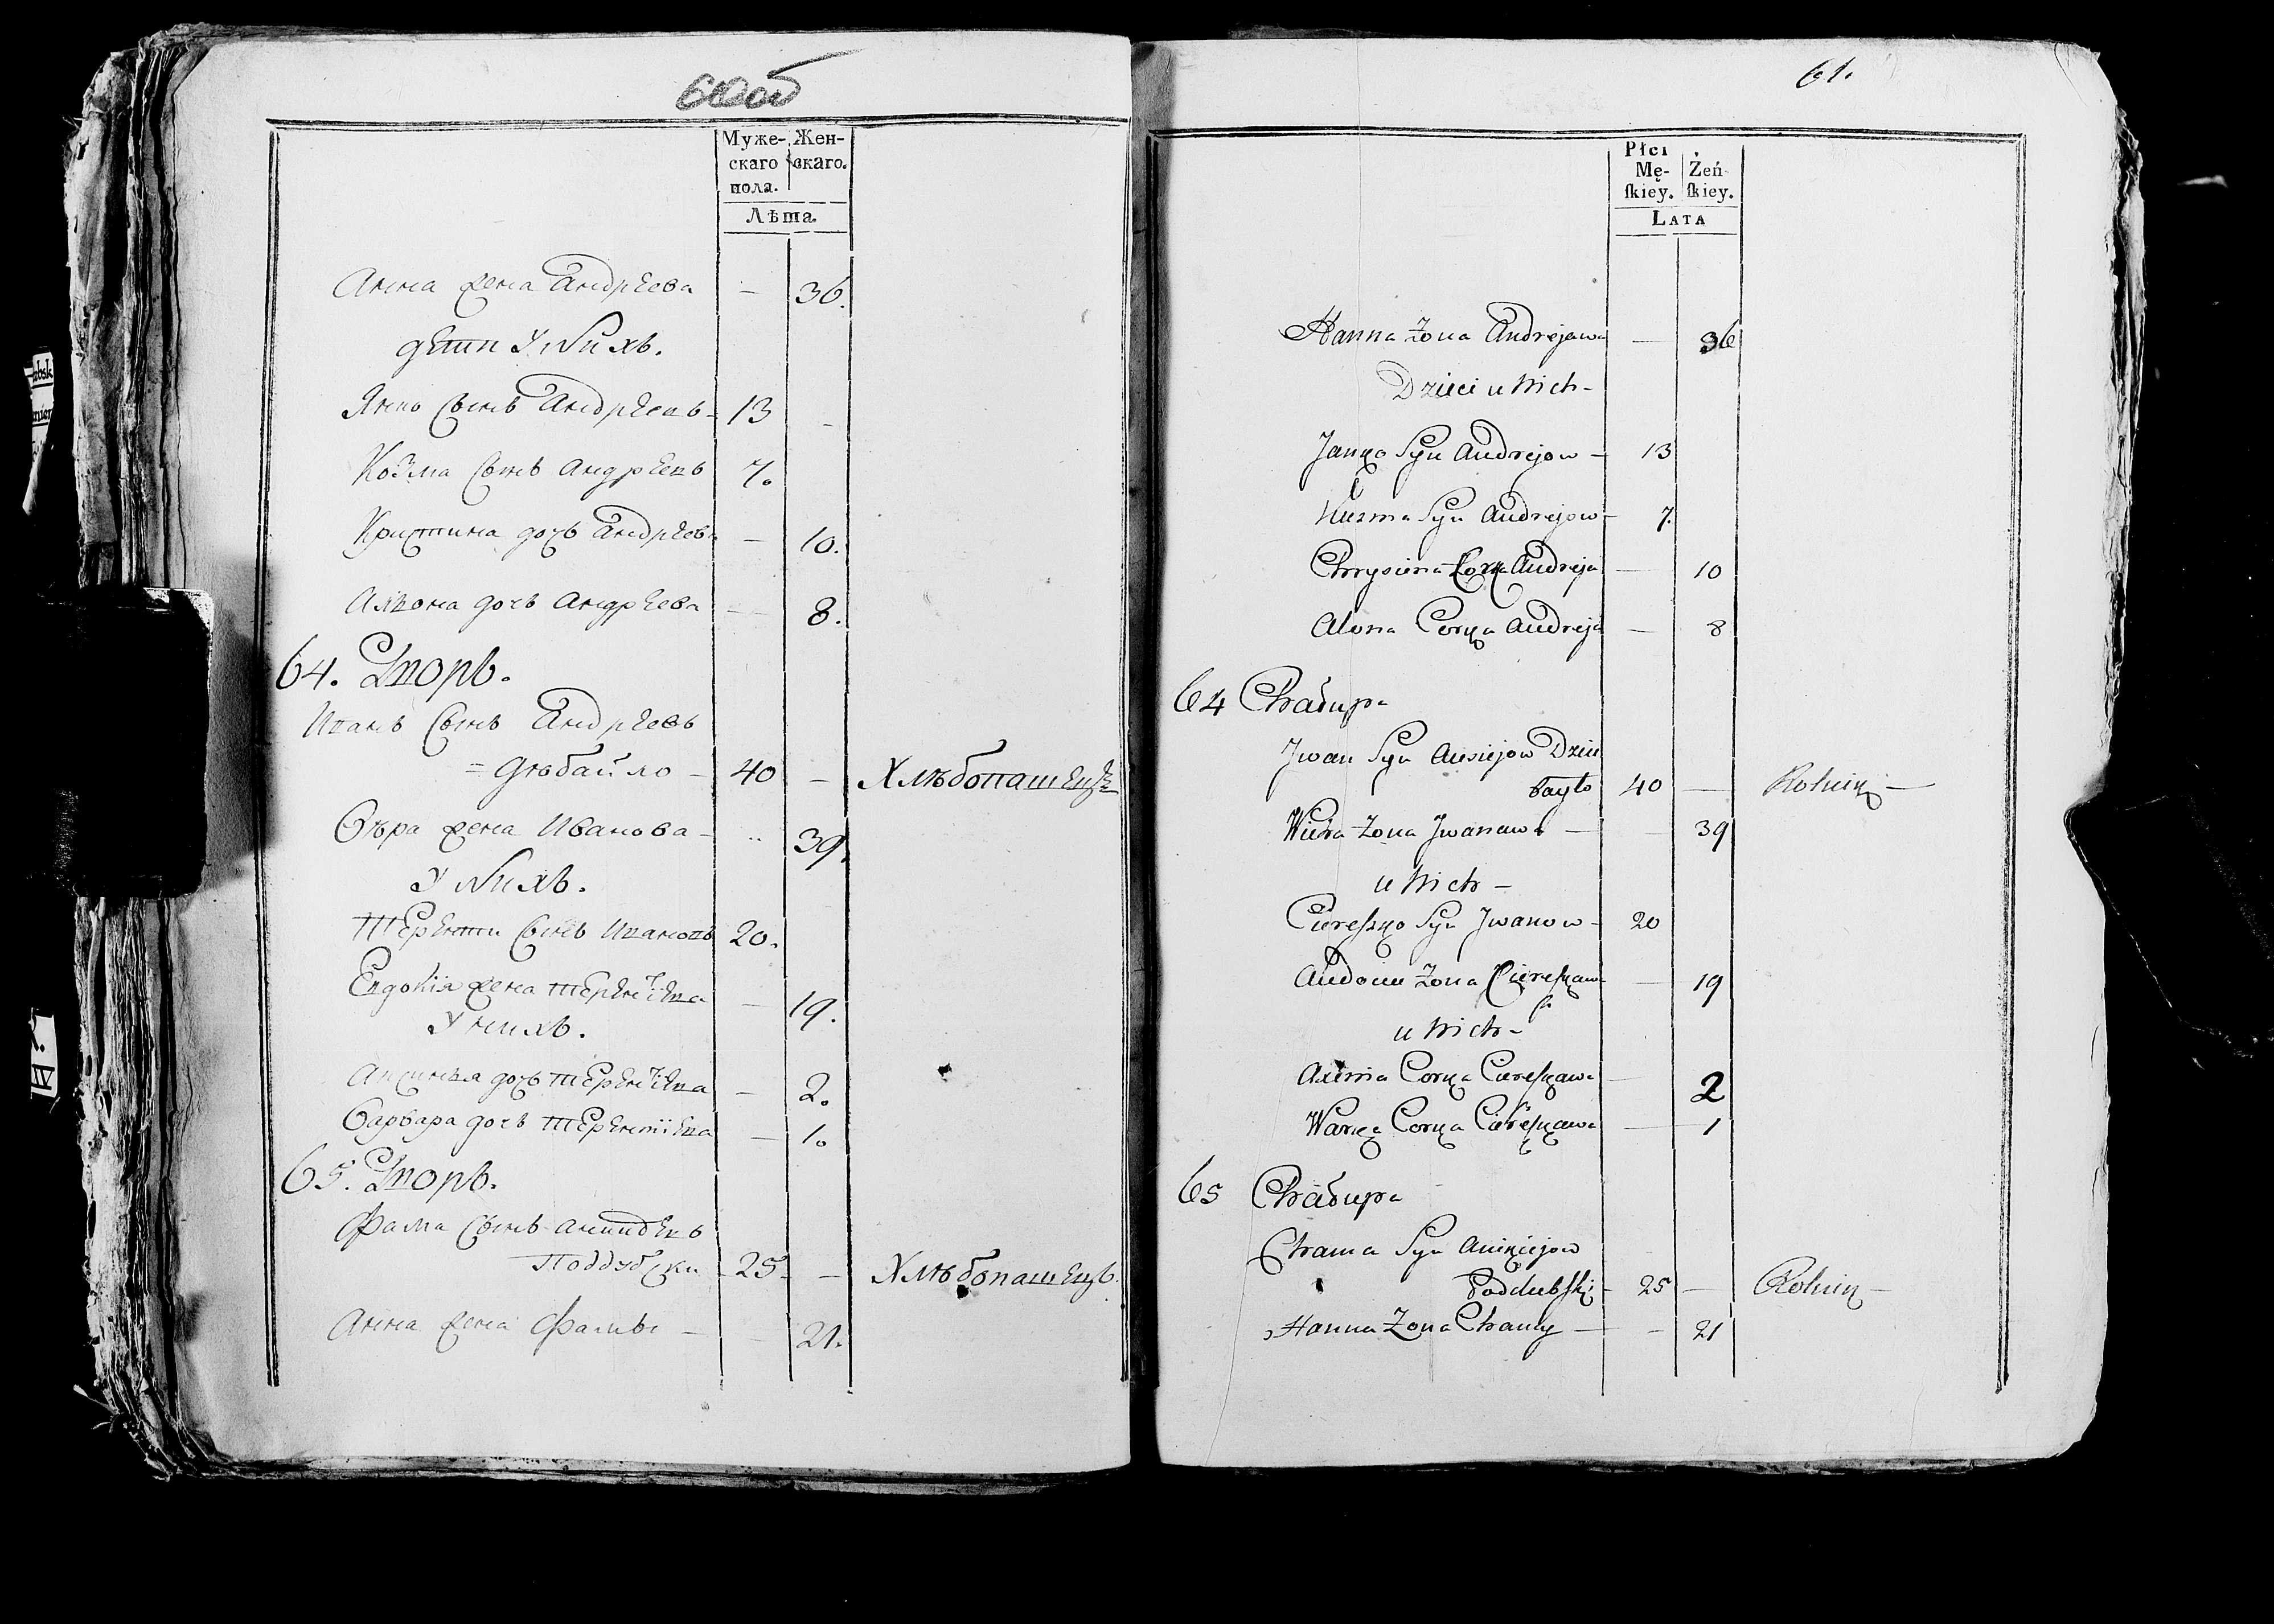 60об
Муже- Жен-
скаго скаго.
пола.
Лѣта.
Анна жена Андрѣева — 36.
дети у нихъ.
Янко сынъ Андрѣевъ - 13
Козма сынъ андрѣевъ 7.
Кристина дочь Андрѣева — 10.
Алѣона дочь андрѣева — 8.
64. Дворъ.
Иванъ сынъ Андрѣевъ
= Дзѣбайло - 40 — Хлѣбопашецъ
Вѣра жена Иванова - 39.
у нихъ.
Терентии сынъ Ивановъ 20.
Евдокія жена Терентіева — 19.
у нихъ.
Аксинья дочь Терентіева — 2.
Варвара дочь Терентіева — 1.
65. Дворъ.
Фама сынъ
Поддубски - 25 — Хлѣбопашецъ.
Анна жена Фамы — 21.
61.
Płci
Mę- Żeń-
ſkiey. ſkiey.
LATA
Hanna Zona Andrejawa — 36
Dzieci u Nich -
Janko Syn Andrejow - 13
Kuzma Syn Andrejow - 7.
Chrysina Corka Andreja — 10
Alona Corka Andreja — 8
64 Chałupa
Jwan Syn Dzie
bayło 40 — Rolnik —
Wiera Zona Jwanawa — 39
u Nich -
Cereszko Syn Jwanow - 20
Audocia Zona Cereszkawa — 19
u Nich -
Axinia Corka Cereszkawa — 2
Warka Corka Cereszkawa — 1
65 Chałupa
Chama Syn Anikiejow
Poddubski - 25 — Rolnik —
Hanna Zona Chamy — 21